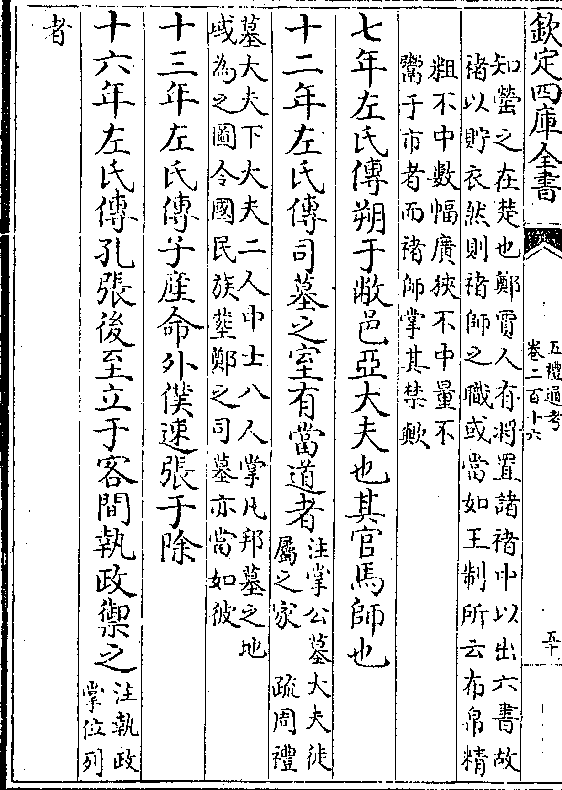 欽定四庫全書
五禮通考
卷二百十六
五十
知罃之在楚也鄭賈人有將置諸褚中以出六書故
褚以貯衣然則褚師之職或當如王制所云布帛精
粗不中數幅廣狹不中量不
鬻于市者而褚師掌其禁歟
七年左氏傳朔于敝邑亞大夫也其官馬師也
十二年左氏傳司墓之室有當道者
注掌公墓大夫徒
屬之家 疏周禮
墓大夫下大夫二人中士八人掌凡邦墓之地
域為之圖令國民族塟鄭之司墓亦當如彼
十三年左氏傳子産命外僕速張于除
十六年左氏傳孔張後至立于客間執政禦之
注執政
掌位列
者